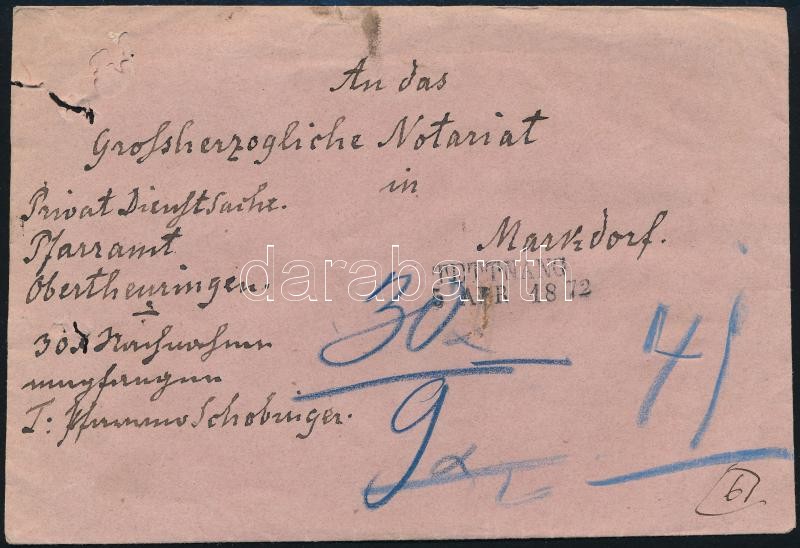 An das
Grossherzogliche Notariat
in
Markdorf.
Privat Dienstsache.
Pfarramt
Obertheuringen.
30x Nachnahme
T: Schobinger.
TETTNANG
5 APR 1872
30x
9x
41
61
darabanth.com